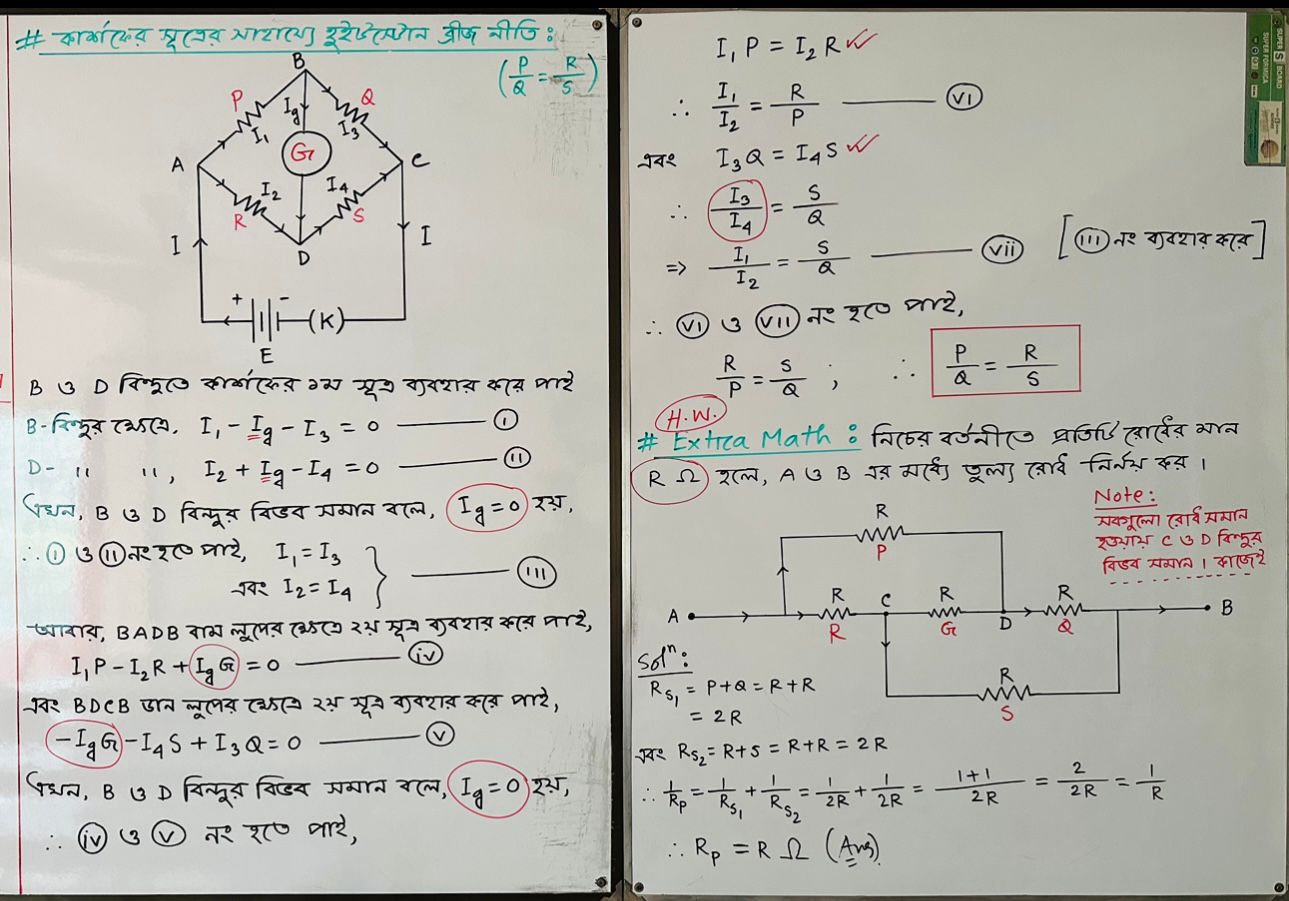 # কার্শফের সূত্রের সাহায্যে হুইটস্টোন ব্রীজ নীতি :
(P/Q = R/S)
B
P
Q
I₁
Ig
I₃
G
A
C
I₂
I₄
R
S
D
I
I
+ -
(K)
E
B ও D বিন্দুতে কার্শফের ১ম সূত্র ব্যবহার করে পাই
B-বিন্দুর ক্ষেত্রে, I₁ - Ig - I₃ = 0 —— (i)
D- " ", I₂ + Ig - I₄ = 0 —— (ii)
এখন, B ও D বিন্দুর বিভব সমান বলে, Ig = 0 হয়,
∴ (i) ও (ii) নং হতে পাই, I₁ = I₃
এবং I₂ = I₄ } —— (iii)
আবার, BADB বাম লুপের ক্ষেত্রে ২য় সূত্র ব্যবহার করে পাই,
I₁P - I₂R + IgG = 0 —— (iv)
এবং BDCB ডান লুপের ক্ষেত্রে ২য় সূত্র ব্যবহার করে পাই,
-IgG - I₄S + I₃Q = 0 —— (v)
এখন, B ও D বিন্দুর বিভব সমান বলে, Ig = 0 হয়,
∴ (iv) ও (v) নং হতে পাই,
I₁P = I₂R
∴ I₁/I₂ = R/P —— (vi)
এবং I₃Q = I₄S
∴ I₃/I₄ = S/Q
=> I₁/I₂ = S/Q —— (vii) [(iii) নং ব্যবহার করে]
∴ (vi) ও (vii) নং হতে পাই,
R/P = S/Q ; ∴ P/Q = R/S
H.W.
# Extra Math : নিচের বর্তনীতে প্রতিটি রোধের মান
R Ω হলে, A ও B এর মধ্যে তুল্য রোধ নির্নয় কর।
Note:
সবগুলো রোধ সমান
হওয়ায় C ও D বিন্দুর
বিভব সমান। কাজেই
R
P
A
R
R
C
R
G
D
R
Q
B
R
S
Solⁿ:
Rs₁ = P+Q = R+R
= 2R
এবং Rs₂ = R+S = R+R = 2R
∴ 1/Rp = 1/Rs₁ + 1/Rs₂ = 1/2R + 1/2R = 1+1/2R = 2/2R = 1/R
∴ Rp = R Ω (Ans)
SUPER S BOARD
SUPER FORMICA